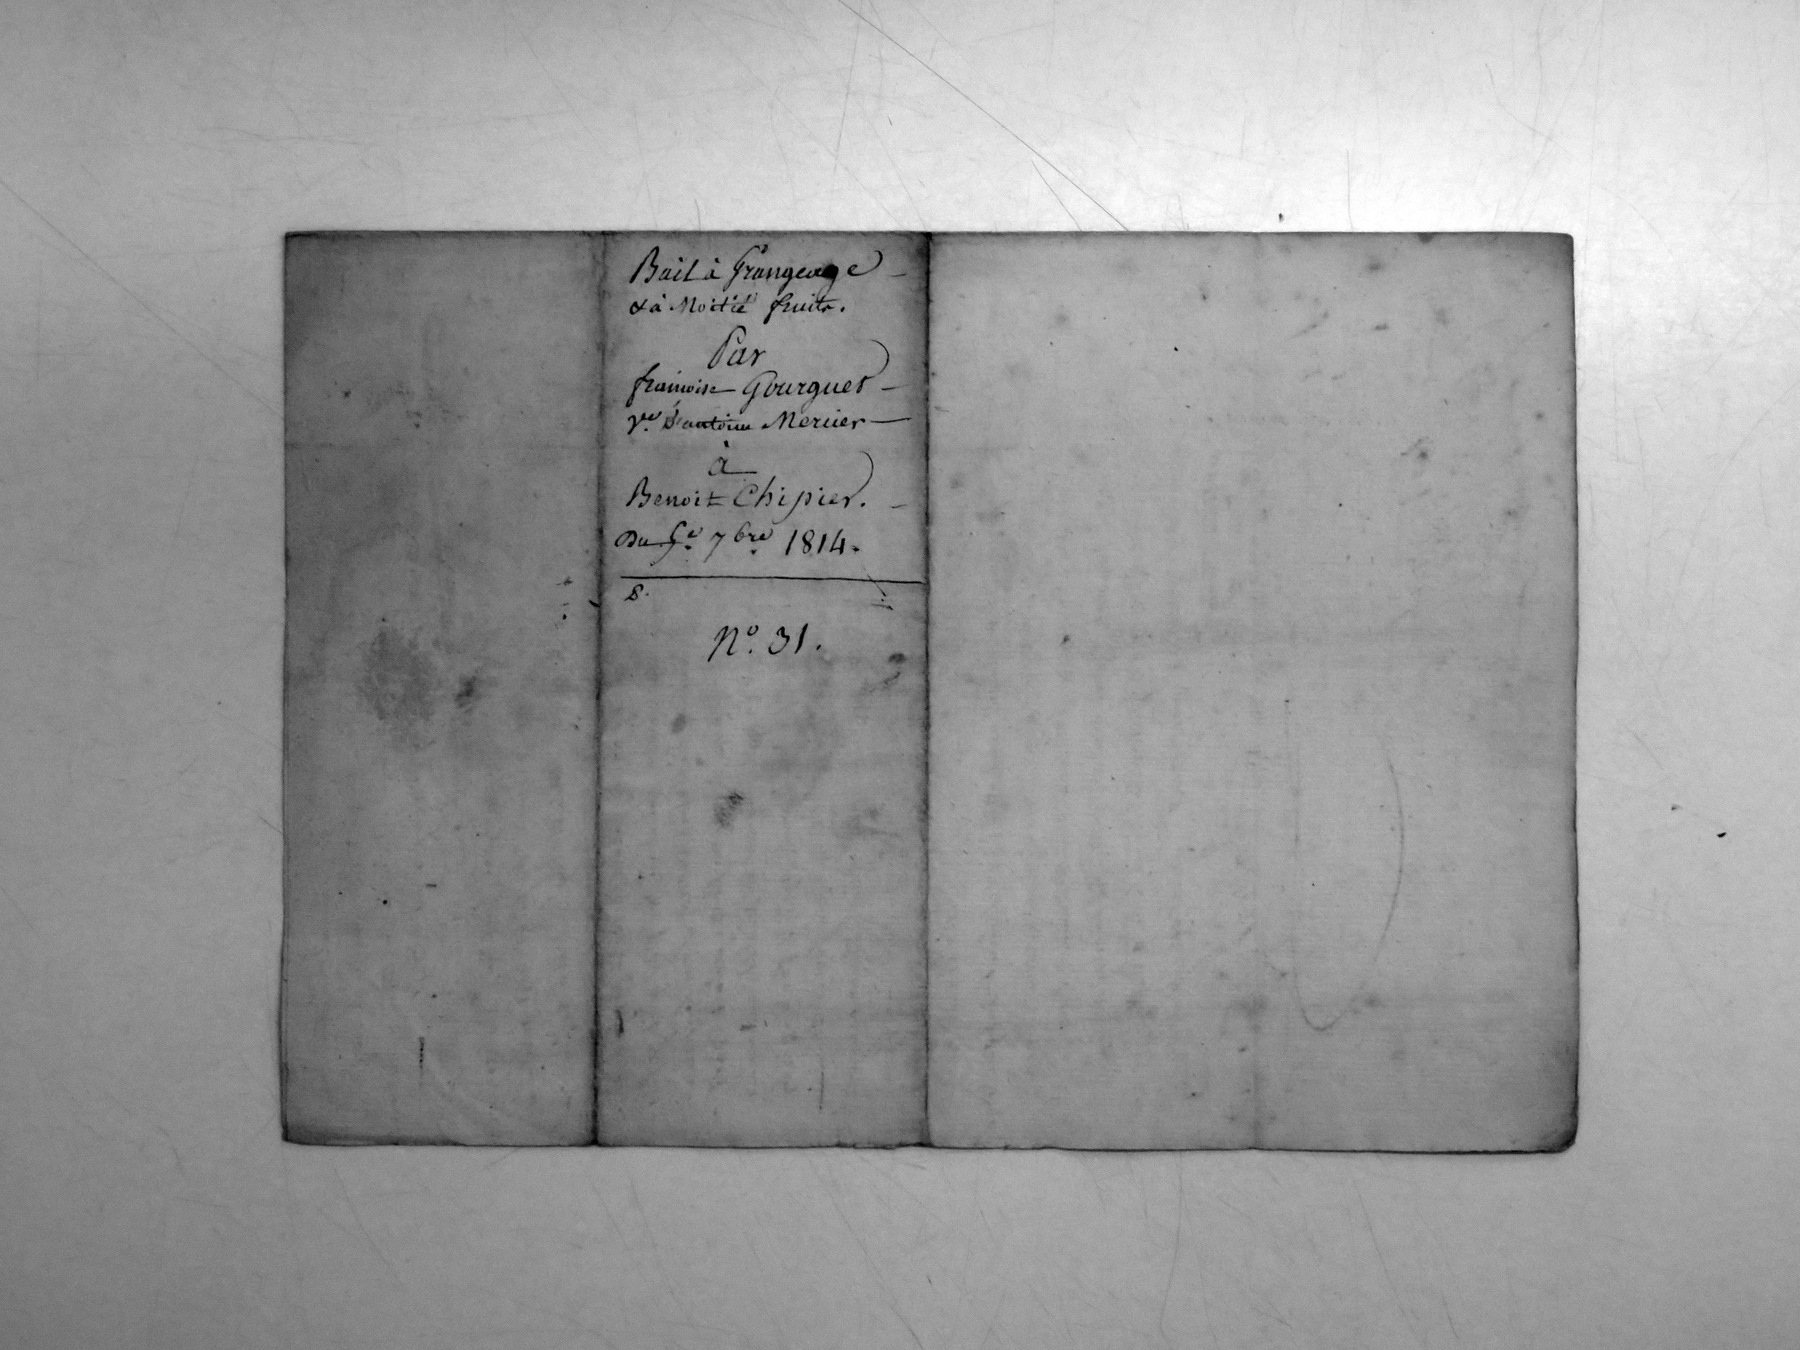 Bail à Grangeage
& à Moitié fruits.
Par
françoise Gourguet
Ve. d'antoine Mercier
à
Benoit Chipier.
Du 7bre. 1814.
N°. 31.